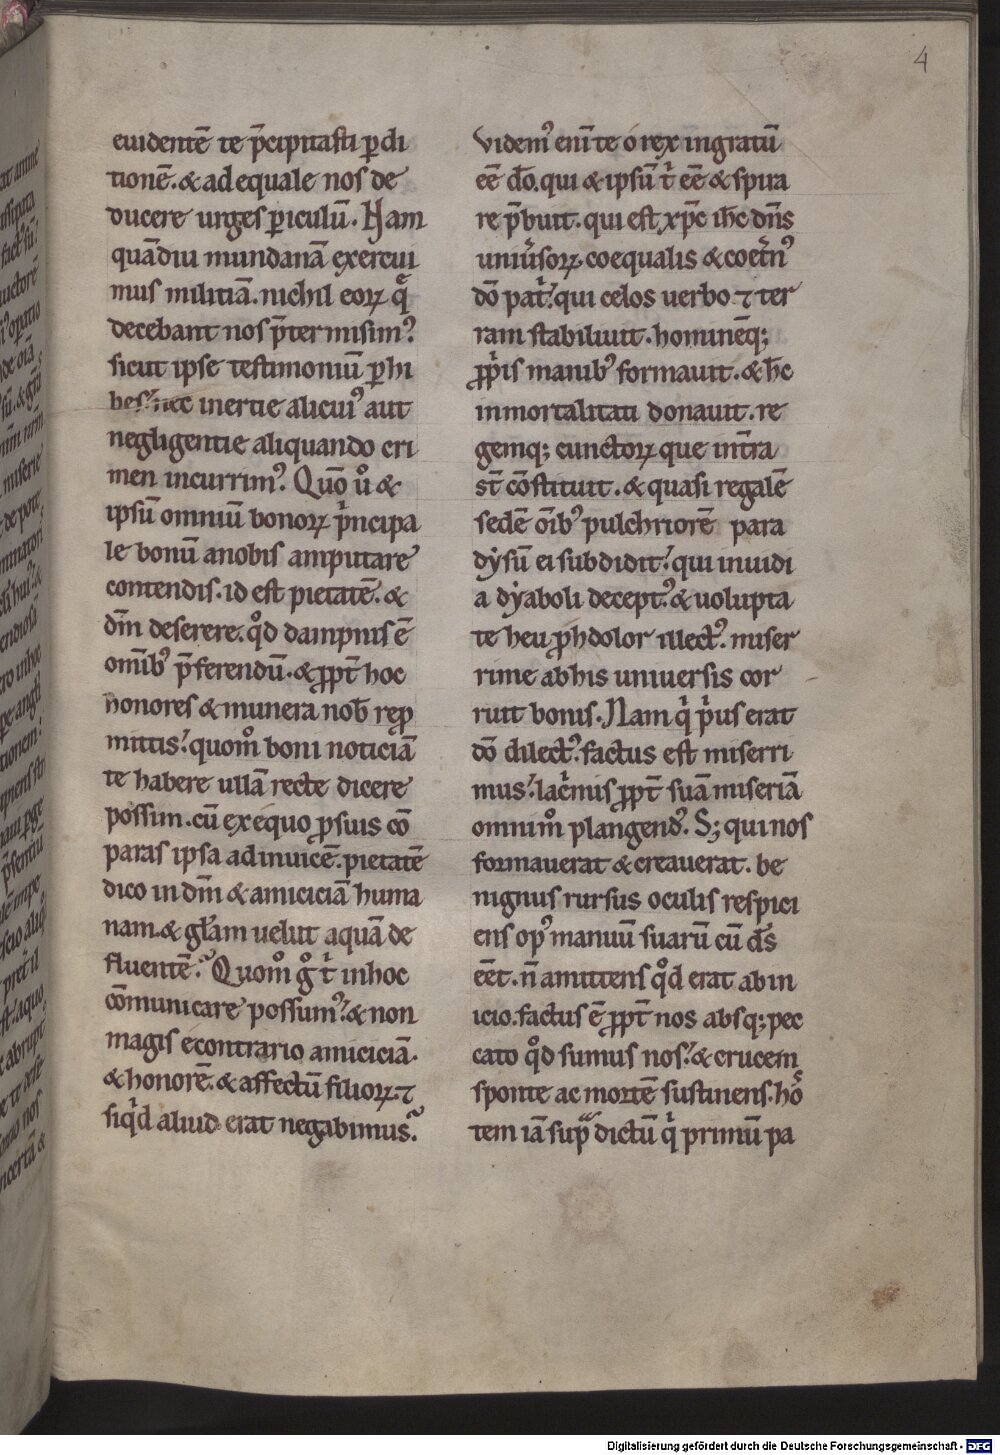 4
euidentē te p̄cipitasti ꝑdi
tionē. & ad equale nos de
ducere urges ꝑiculū. Nam
quādiu mundanā exercui
mus militiā. nichil eoꝝ q̄
decebant nos p̄termisimꝰ.
sicut ipse testimoniū ꝑhi
bes. nec inertie alicuiꝰ aut
negligentie aliquando cri
men incurrimꝰ. Quō ů &
ipsū omniū bonoꝝ pͥncipa
le bonū a nobis amputare
contendis. id est pietatē. &
dm̄ deserere. qͦd dampnis ē
omībꝰ p̄ferendū. & ꝓpt̄ hoc
honores & munera nob̄ reꝓ
mittis. quomͦ boni noticiā
te habere ullā recte dicere
possim. cū ex equo ꝓ suis cō
paras ipsa adinuicē. pietatē
dico in dm̄ & amiciciā huma
nam. & gl̄am uelut aquā de
fluentē. Quomͦ gͦ tͥ in hoc
cōmunicare possumꝰ. & non
magis econtrario amiciciā.
& honorē. & affectū filioꝝ. ⁊
siqͥd aliud erat negabimus.
Videmꝰ enī te o rex ingratū
eē dō. qui & ipsū tͥ eē & spira
re p̄buit. qui est xp̄c ih̄c dn̄s
uniuͥsoꝝ coequalis & coet̄nꝰ
dō patͥ. qui celos uerbo ⁊ ter
ram stabiliuit. hominēq;
ꝓpͥis manibꝰ formauit. & h̄c
inmortalitati donauit. re
gemq; cunctoꝝ que int̄ra
st̄ cōstituit. & quasi regalē
sedē oībꝰ pulchriorē para
dẏsū ei subdidit. qui inuidi
a dẏaboli deceptꝰ. & uolupta
te heu ꝓh dolor illectꝰ. miser
rime ab his uniuersis cor
ruit bonis. Nam qͥ pͥus erat
dō dilectꝰ. factus est miserri
mus. lacͥmis ꝓpt̄ suā miseriā
omnimͦ plangendꝰ. S; qui nos
formauerat & creauerat. be
nignus rursus oculis respici
ens opꝰ manuū suarū cū ds̄
eēt. n̄ amittens qͦd erat ab in
icio. factus ē ꝓpt̄ nos absq; pec
cato qͦd sumus nos. & crucem
sponte ac mortē sustinens. hō
tem iā supᵃ dictū qͥ primū pa
Digitalisierung gefördert durch die Deutsche Forschungsgemeinschaft - DFG